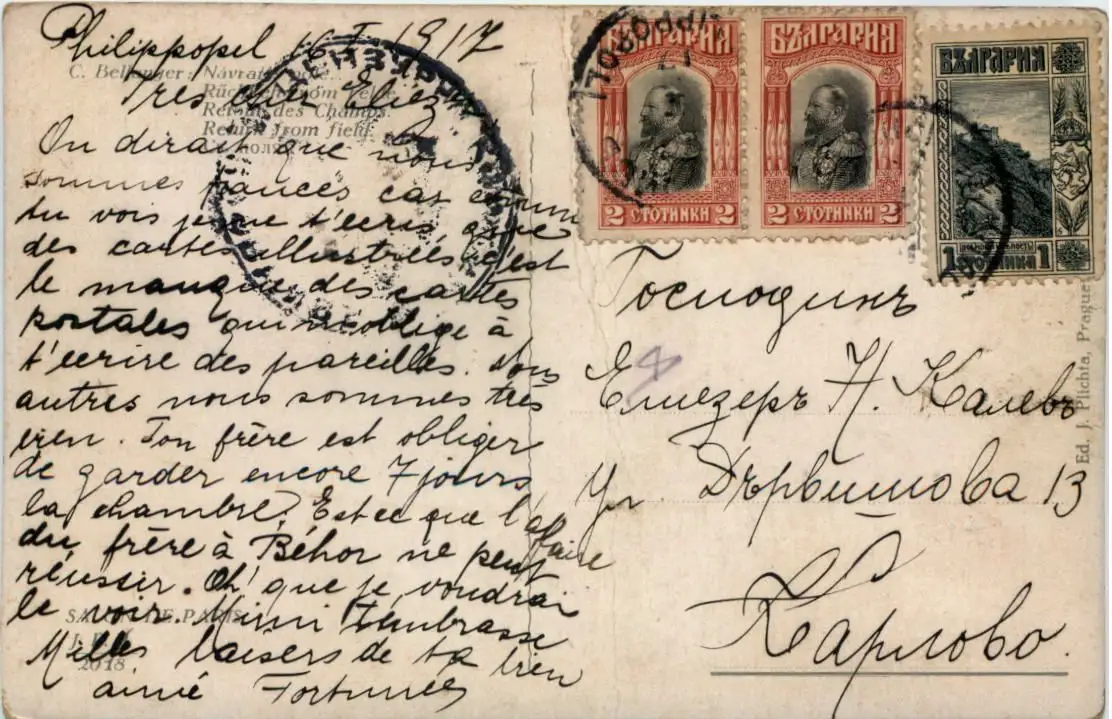 Philippopel 16 I 1917
C. Bellanger: Návrat z pole.
Rückkehr vom Felde.
Retour des Champs.
Return from field.
Très cher Eliezer
On dirait que nous
sommes fiancés car comme
tu vois je ne t'écris que
des cartes illustrées c'est
le manque des cartes
postales qui m'oblige à
t'écrire des pareilles. Nous
autres nous sommes très
bien. Ton frère est obliger
de garder encore 7 jours
la chambre. Est ce que l'affaire
du frère à Béhor ne peut
réussir. Oh! que je voudrai
le voir. Mimi t'embrasse
Milles baisers de ta bien
aimé Fortunée
SALON DE PARIS
2018
БЪЛГАРИЯ
2 СТОТИНКИ 2
БЪЛГАРИЯ
2 СТОТИНКИ 2
БЪЛГАРИЯ
1 СТОТИНКА 1
Господинъ
Елиезеръ Н. Калевъ
ул. Дървишова 13
Карлово.
Ed. J. Plichta, Prague